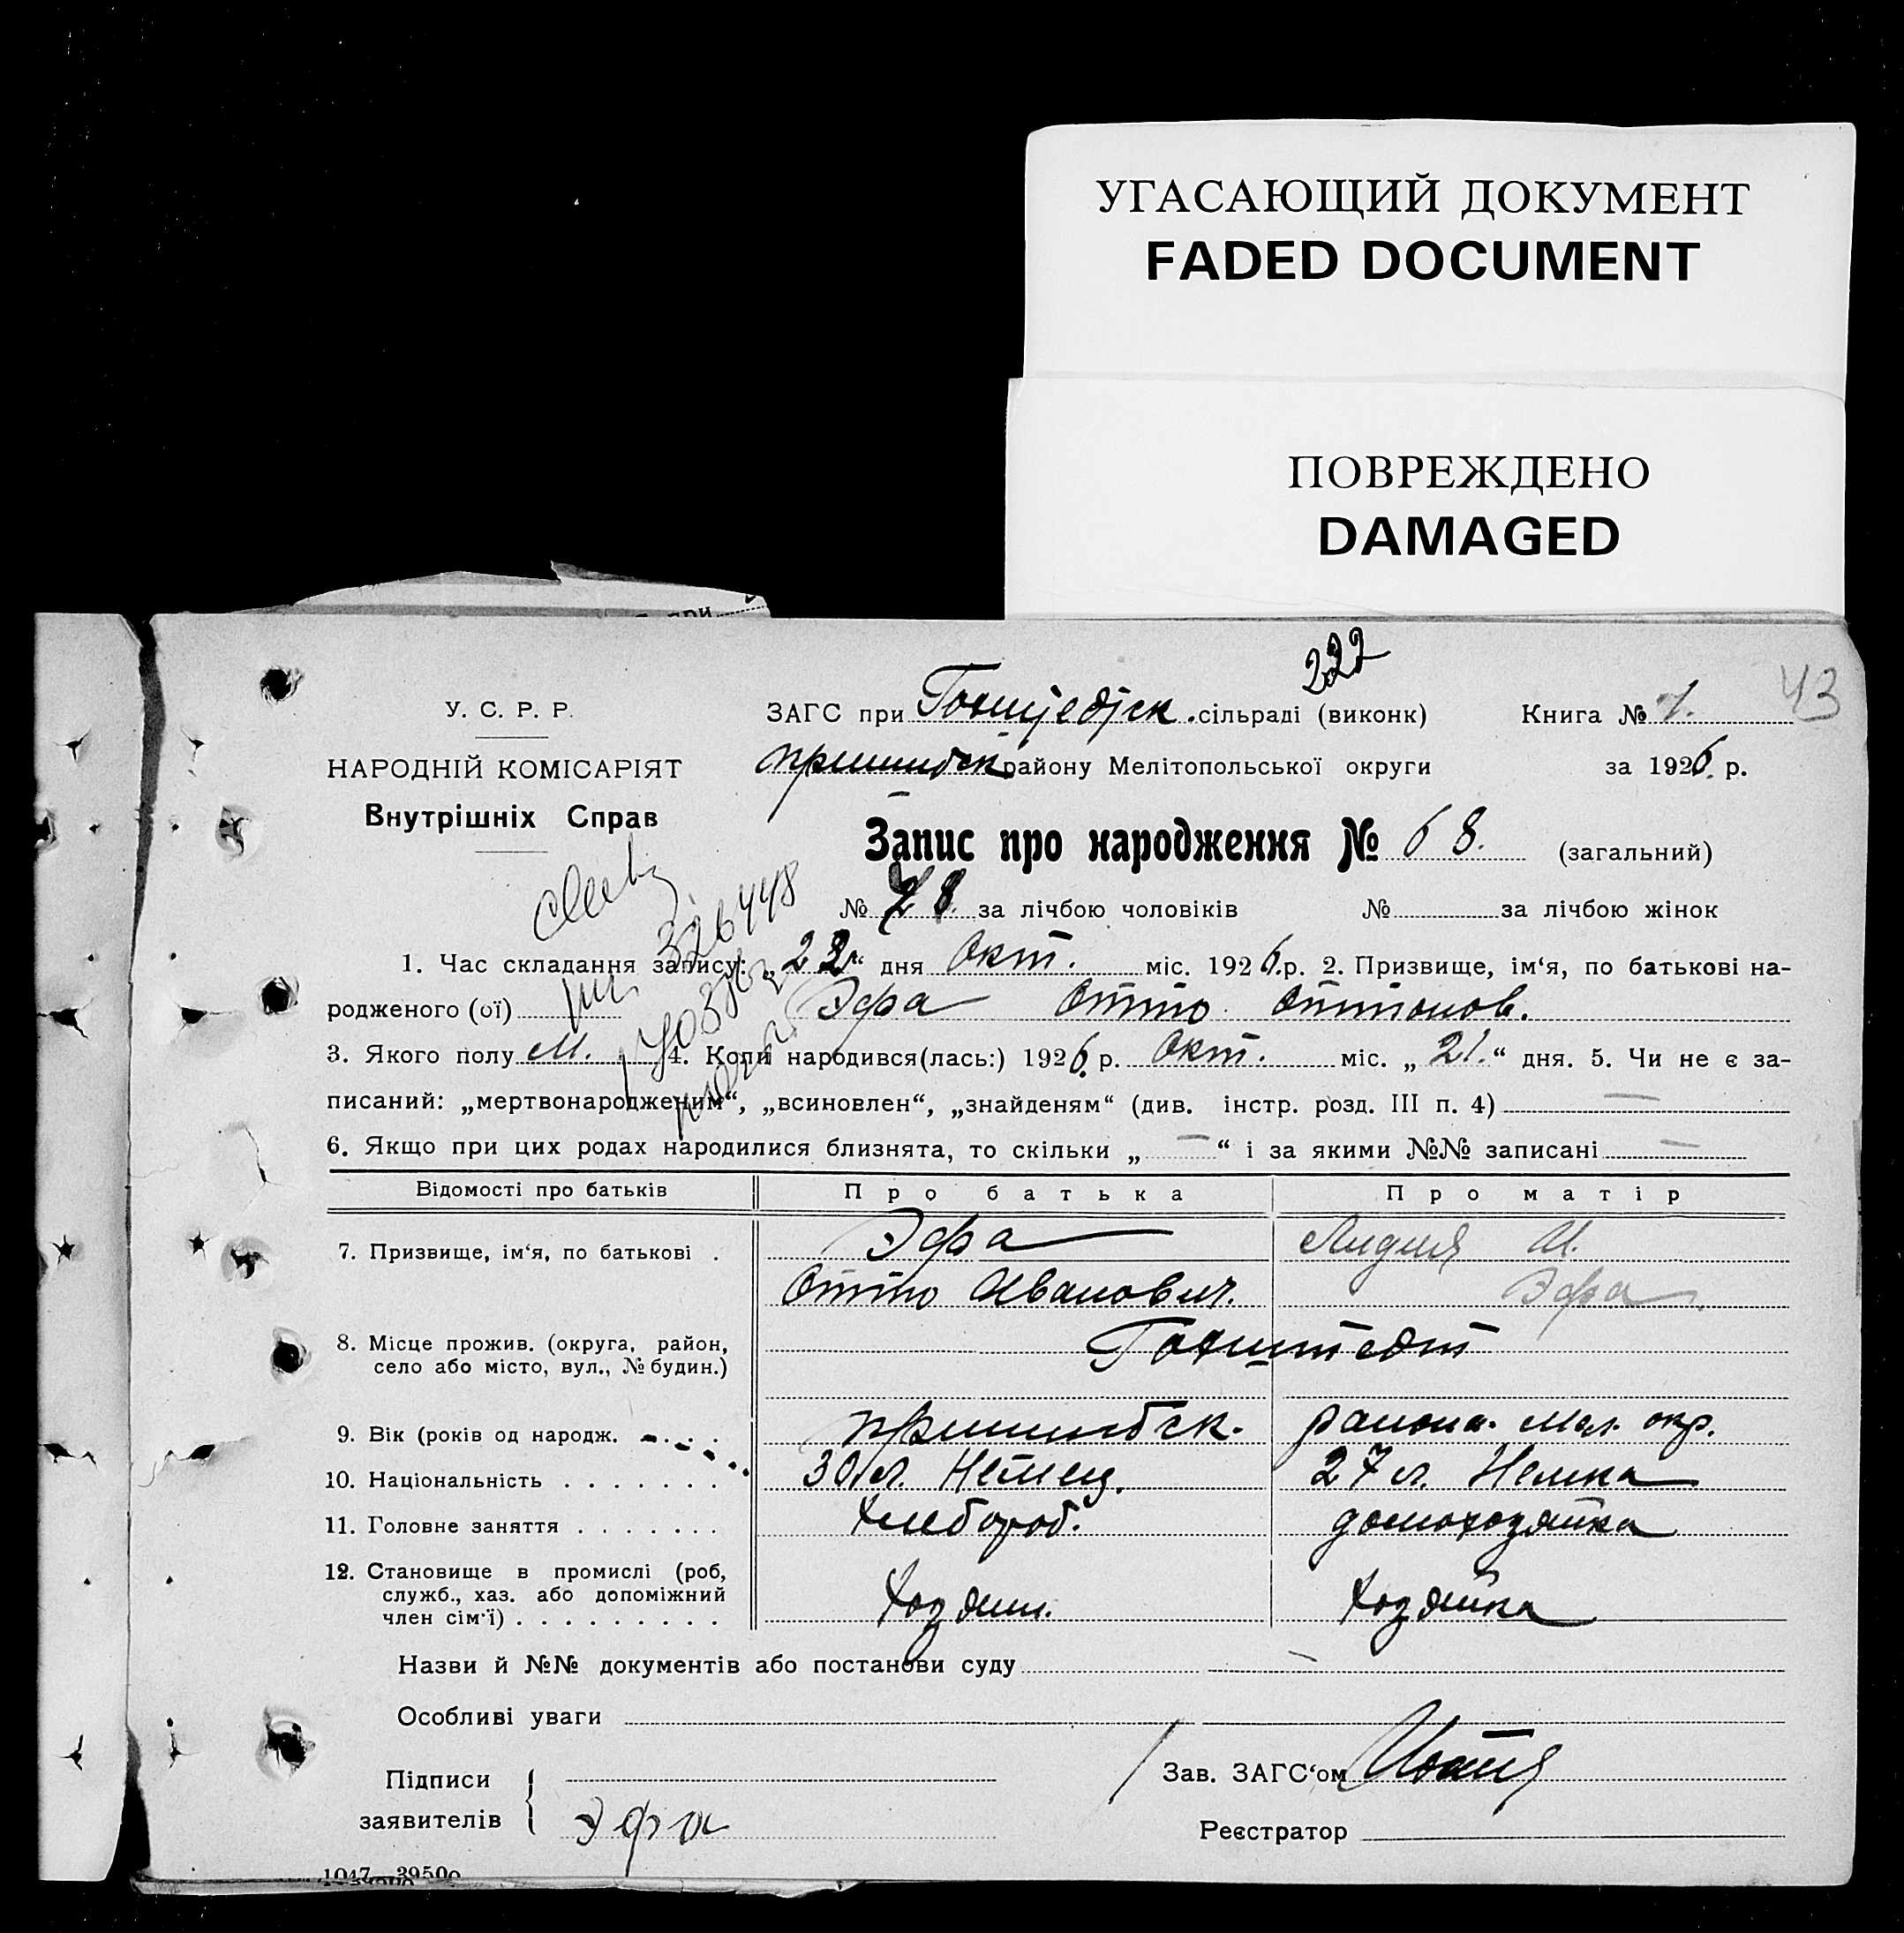 УГАСАЮЩИЙ ДОКУМЕНТ
FADED DOCUMENT
ПОВРЕЖДЕНО
DAMAGED
222
43
У. С. Р. Р.
НАРОДНІЙ КОМІСАРІЯТ
Внутрішніх Справ
ЗАГС при сільраді (виконк) Книга № 1.
пришибск району Мелітопольської округи за 1926 р.
Запис про народження № 68. (загальний)
№ за лічбою чоловіків № за лічбою жінок
326448
1. Час складання запису: „ “ дня Окт. міс. 1926 р. 2. Призвище, ім‘я, по батькові на-
родженого (ої) Эфа Отто Оттонов.
3. Якого полу М. 4. Коли народився(лась:) 1926 р. Окт. міс. „21.“ дня. 5. Чи не є за-
писаний: „мертвонародженим“, „всиновлен“, „знайденям“ (див. інстр. розд. III п. 4) —
6. Якщо при цих родах народилися близнята, то скільки „ — “ і за якими №№ записані —
Відомості про батьків Про батька Про матір
7. Призвище, ім‘я, по батькові . Эфа Лидия И.
Отто Иванович. Эфа.
8. Місце прожив. (округа, район,
село або місто, вул., № будин.) Гохштедт
9. Вік (років од народж. . . . . пришибск. района. Мел. окр.
10. Національність . . . . . . . 30 л. Немец. 27 л. Немка
11. Головне заняття . . . . . . . хлебороб. домохозяйка
12. Становище в промислі (роб,
служб., хаз. або допоміжний
член сім‘ї) . . . . . . . . . хозяин. хозяйка
Назви й №№ документів або постанови суду —
Особливі уваги
Підписи
заявителів Эфа
Зав. ЗАГС‘ом
Реєстратор
1047—39500